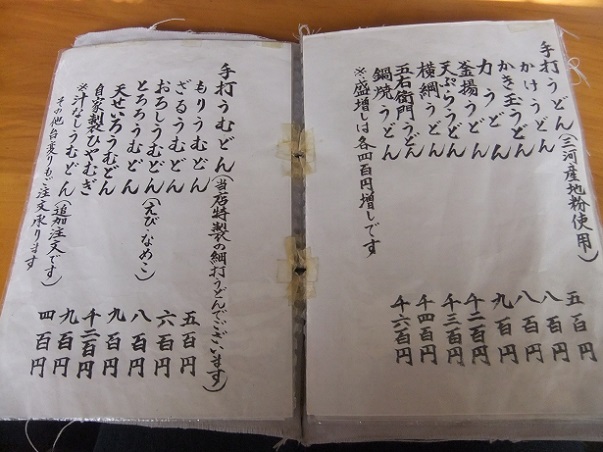 手打うどん(三河産地粉使用)
かけうどん 五百円
かき玉うどん 八百円
力うどん 八百円
釜揚うどん 九百円
天ぷらうどん 千二百円
横綱うどん 千三百円
五右衛門うどん 千四百円
鍋焼うどん 千六百円
※盛増しは各四百円増しです
手打うむどん(当店特製の細打うどんでございます)
もりうむどん 五百円
ざるうむどん 六百円
おろしうむどん(えび・なめこ) 八百円
とろろうむどん 九百円
天せいろうむどん 千二百円
自家製ひやむぎ 九百円
※汁なしうむどん(追加注文です) 四百円
その他台変りもご注文承ります